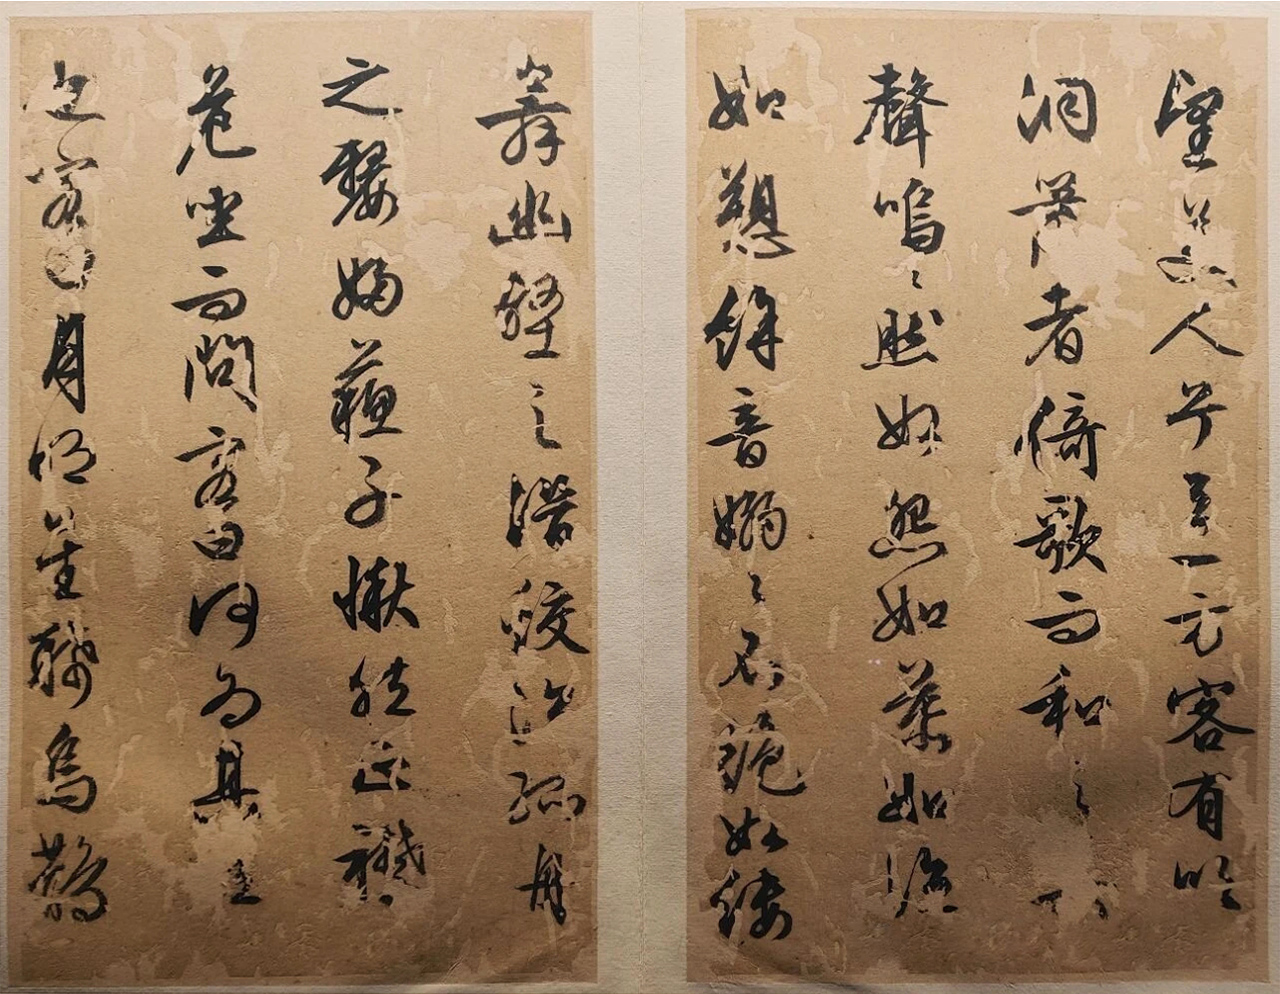 望美人兮天一方客有吹
洞簫者倚歌而和之其
聲嗚〻然如怨如慕如泣
如愬餘音嫋〻不絕如縷
舞幽壑之潛蛟泣孤舟
之嫠婦蘇子愀然正襟
危坐而問客曰何為其
也客曰月明星稀烏鵲